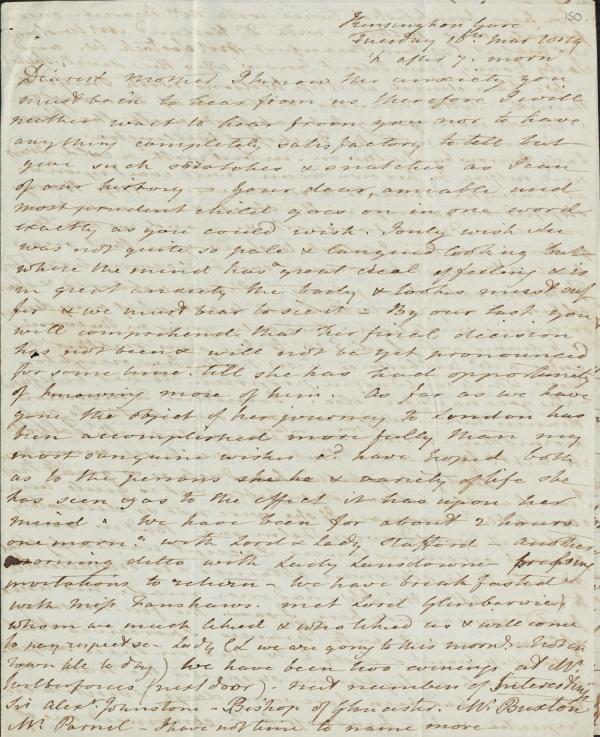 150
Kensington Gore
Tuesday 16th Mar 1819
½ after 7. morng
Dearest Mother I know the anxiety you
must be in to hear from us therefore I will
neither wait to hear from you nor to have
anything completely satisfactory to tell but
give such scratches & snatches as I can
of our history – Your dear, amiable and
most prudent child goes on in one word
exactly as you could wish. I only wish she
was not quite so pale & languid looking but
where the mind has a great deal of feeling & is
in great anxiety the body & looks must suf
fer & we must bear to see it – By our last you
will comprehend that her final decision
has not been & will not be yet pronounced
for some time till she has had opportunity
of knowing more of him. As far as we have
gone the object of her journey to London has
been accomplished more fully than my
most sanguine wishes cd have hoped both
as to the persons she & variety of life she
has seen & as to the effect it has upon her
mind. We have been for about 2 hours
one morng with Lord & Lady Stafford – another
morning ditto with Lady Lansdowne pressing
invitations to return – We have breakfasted
with Miss Fanshaws. met Lord Glenbervie
whom we much liked & who liked us & will come
to pay respects – Lady
town till to day) We have been two evenings at Mr
Wilberforces (next door) – met numbers of Interesting
Sir Alexr Johnstone – Bishop of Gloucester. Mr Buxton
Mr Parnel – I have not time to name more